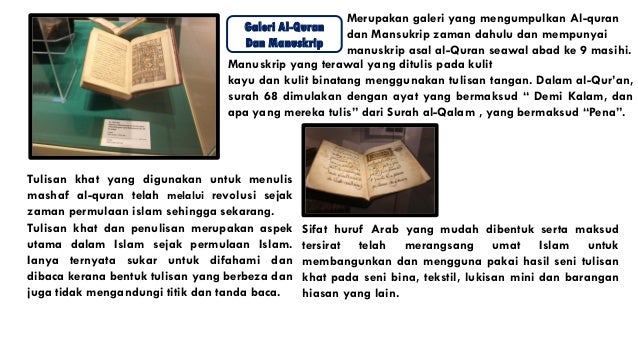 Galeri Al-Quran
Dan Manuskrip
Merupakan galeri yang mengumpulkan Al-quran
dan Mansukrip zaman dahulu dan mempunyai
manuskrip asal al-Quran seawal abad ke 9 masihi.
Manuskrip yang terawal yang ditulis pada kulit
kayu dan kulit binatang menggunakan tulisan tangan. Dalam al-Qur'an,
surah 68 dimulakan dengan ayat yang bermaksud “ Demi Kalam, dan
apa yang mereka tulis” dari Surah al-Qalam , yang bermaksud “Pena”.
Tulisan khat yang digunakan untuk menulis
mashaf al-quran telah melalui revolusi sejak
zaman permulaan islam sehingga sekarang.
Tulisan khat dan penulisan merupakan aspek
utama dalam Islam sejak permulaan Islam.
Ianya ternyata sukar untuk difahami dan
dibaca kerana bentuk tulisan yang berbeza dan
juga tidak mengandungi titik dan tanda baca.
Sifat huruf Arab yang mudah dibentuk serta maksud
tersirat telah merangsang umat Islam untuk
membangunkan dan mengguna pakai hasil seni tulisan
khat pada seni bina, tekstil, lukisan mini dan barangan
hiasan yang lain.